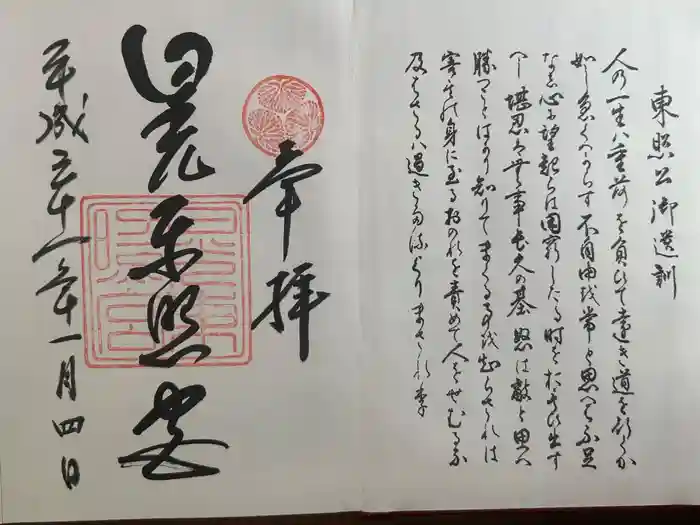 東照公御遺訓
人の一生ハ重荷を負ひて遠き道を行くか
如し急くへからす不自由を常と思へハ不足
なし心に望起らは困窮したる時を おもひ出す
へし堪忍は無事長久の基 怒は敵と思へ
勝つことはかり知りてまくる事を知らされは
害其の身に至るおのれを責めて人をせむるな
及はさるハ過きたるよりまされり
奉拝
日光東照宮
平成三十一年一月四日